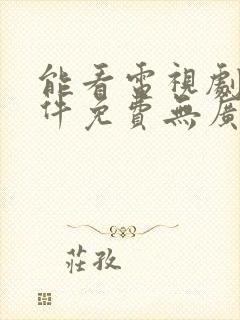 能看電視劇
件免費無廣
莊孜